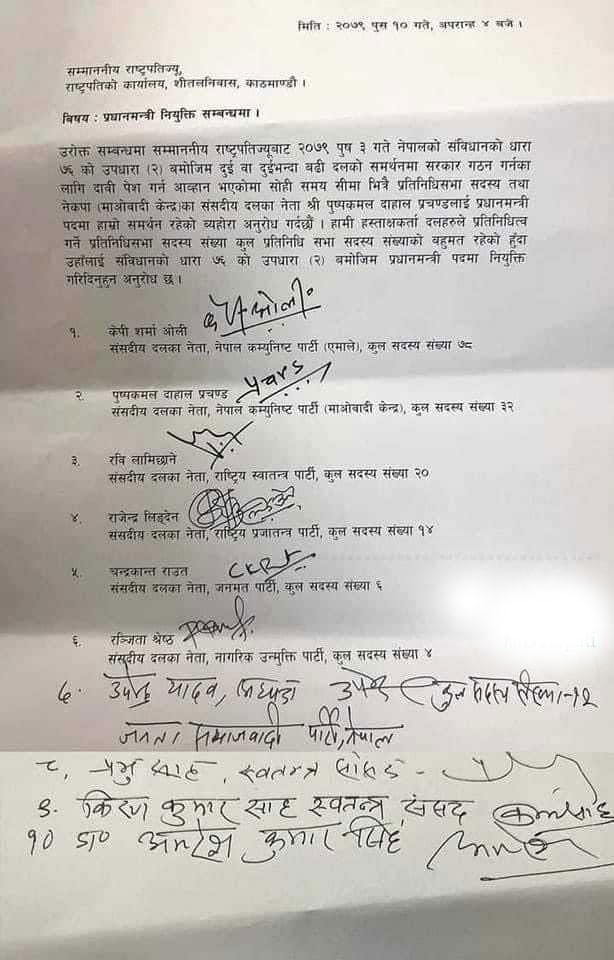 मिति : २०७९ पुस १० गते, अपरान्ह ४ बजे ।
सम्माननीय राष्ट्रपतिज्यू,
राष्ट्रपतिको कार्यालय, शीतलनिवास, काठमाण्डौ ।
बिषय : प्रधानमन्त्री नियुक्ति सम्बन्धमा ।
उरोक्त सम्बन्धमा सम्माननीय राष्ट्रपतिज्यूबाट २०७९ पुष ३ गते नेपालको संविधानको धारा
७६ को उपधारा (२) बमोजिम दुई वा दुईभन्दा बढी दलको समर्थनमा सरकार गठन गर्नका
लागि दावी पेश गर्न आव्हान भएकोमा सोही समय सीमा भित्रै प्रतिनिधिसभा सदस्य तथा
नेकपा (माओवादी केन्द्र)का संसदीय दलका नेता श्री पुष्पकमल दाहाल प्रचण्डलाई प्रधानमन्त्री
पदमा हाम्रो समर्थन रहेको व्यहोरा अनुरोध गर्दछौं । हामी हस्ताक्षकर्ता दलहरुले प्रतिनिधित्व
गर्ने प्रतिनिधिसभा सदस्य संख्या कुल प्रतिनिधि सभा सदस्य संख्याको बहुमत रहेको हुँदा
उहाँलाई संविधानको धारा ७६ को उपधारा (२) बमोजिम प्रधानमन्त्री पदमा नियुक्ति
गरिदिनुहुन अनुरोध छ ।
१. केपी शर्मा ओली
संसदीय दलका नेता, नेपाल कम्युनिष्ट पार्टी (एमाले), कुल सदस्य संख्या ७८
२. पुष्पकमल दाहाल प्रचण्ड
संसदीय दलका नेता, नेपाल कम्युनिष्ट पार्टी (माओवादी केन्द्र), कुल सदस्य संख्या ३२
३. रवि लामिछाने
संसदीय दलका नेता, राष्ट्रिय स्वातन्त्र पार्टी, कुल सदस्य संख्या २०
४. राजेन्द्र लिङ्देन
संसदीय दलका नेता, राष्ट्रिय प्रजातन्त्र पार्टी, कुल सदस्य संख्या १४
५. चन्द्रकान्त राउत
संसदीय दलका नेता, जनमत पार्टी, कुल सदस्य संख्या ६
६. रञ्जिता श्रेष्ठ
संसदीय दलका नेता, नागरिक उन्मुक्ति पार्टी, कुल सदस्य संख्या ४
७. उपेन्द्र यादव, कुल सदस्य संख्या-१२
जनता समाजवादी पार्टी, नेपाल
८. प्रभु साह, स्वतन्त्र सांसद -
९. किरण कुमार साह स्वतन्त्र संसद
१० डा० अमरेश कुमार सिंह